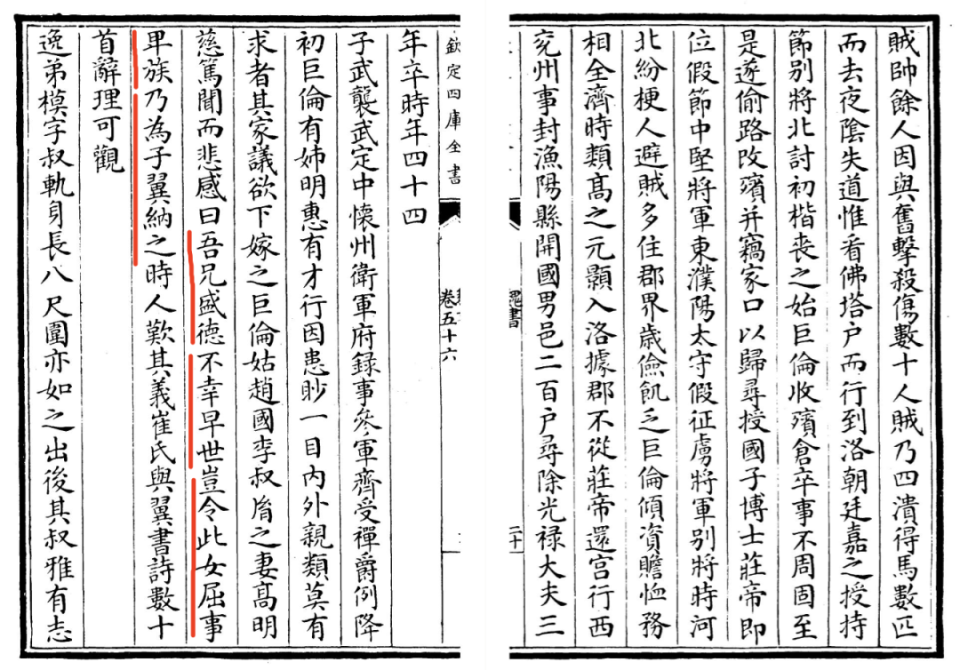 賊帥餘人因與奮擊殺傷數十人賊乃四潰得馬數匹
而去夜陰失道惟看佛塔户而行到洛朝廷嘉之授持
節别將北討初楷喪之始巨倫收殯倉卒事不周固至
是遂偷路改殯并竊家口以歸尋授國子博士莊帝即
位假節中堅將軍東濮陽太守假征虜將軍别將時河
北紛梗人避賊多住郡界歳儉飢乏巨倫傾資贍恤務
相全濟時類髙之元顥入洛據郡不從莊帝還宫行西
兖州事封漁陽縣開國男邑二百户尋除光禄大夫三
欽定四庫全書
卷五十六
年卒時年四十四
子武襲武定中懷州衛軍府録事參軍齊受禪爵例降
初巨倫有姊明惠有才行因患眇一目内外親類莫有
求者其家議欲下嫁之巨倫姑趙國李叔胤之妻髙明
慈篤聞而悲感曰吾兄盛德不幸早世豈令此女屈事
卑族乃為子翼納之時人歎其義崔氏與翼書詩數十
首辭理可觀
逸弟模字叔軌身長八尺圍亦如之出後其叔雅有志